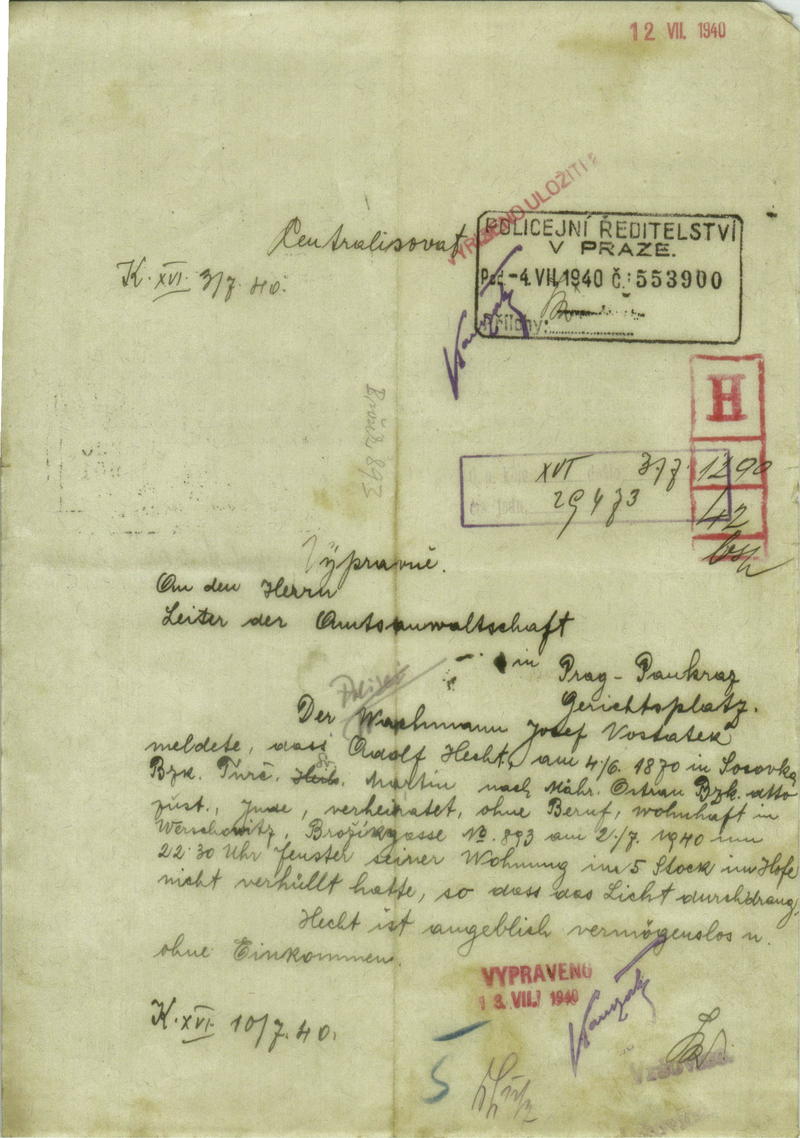 12 VII. 1940
VYŘÍZENO ULOŽITI
Centralisovat
POLICEJNÍ ŘEDITELSTVÍ
V PRAZE.
K. XVI. 3/7. 40.
-4. VII. 1940 č.: 553900
Přílohy:
H
Brožík 893
XVI 3/7. 1290
29473
42
Výpravně.
An den Herrn
Leiter der Amtsanwaltschaft
in Prag-Pankraz
Gerichtsplatz.
Der Wachmann Josef Vostatek
meldete, dass Adolf Hecht, am 4/6. 1870 in Sosovka
Bzk. Turč. Martin nach Mähr. Ostrau Bzk. dtto
zust., Jude, verheiratet, ohne Beruf, wohnhaft in
Werschowitz, Brožíkgasse No. 893 am 2./7. 1940 um
22.30 Uhr Fenster seiner Wohnung im 5 Stock im Hofe
nicht verhüllt hatte, so dass das Licht durchdrang.
Hecht ist angeblich vermögenslos u.
ohne Einkommen.
VYPRAVENO
13. VII. 1940
K. XVI. 10/7. 40.
5